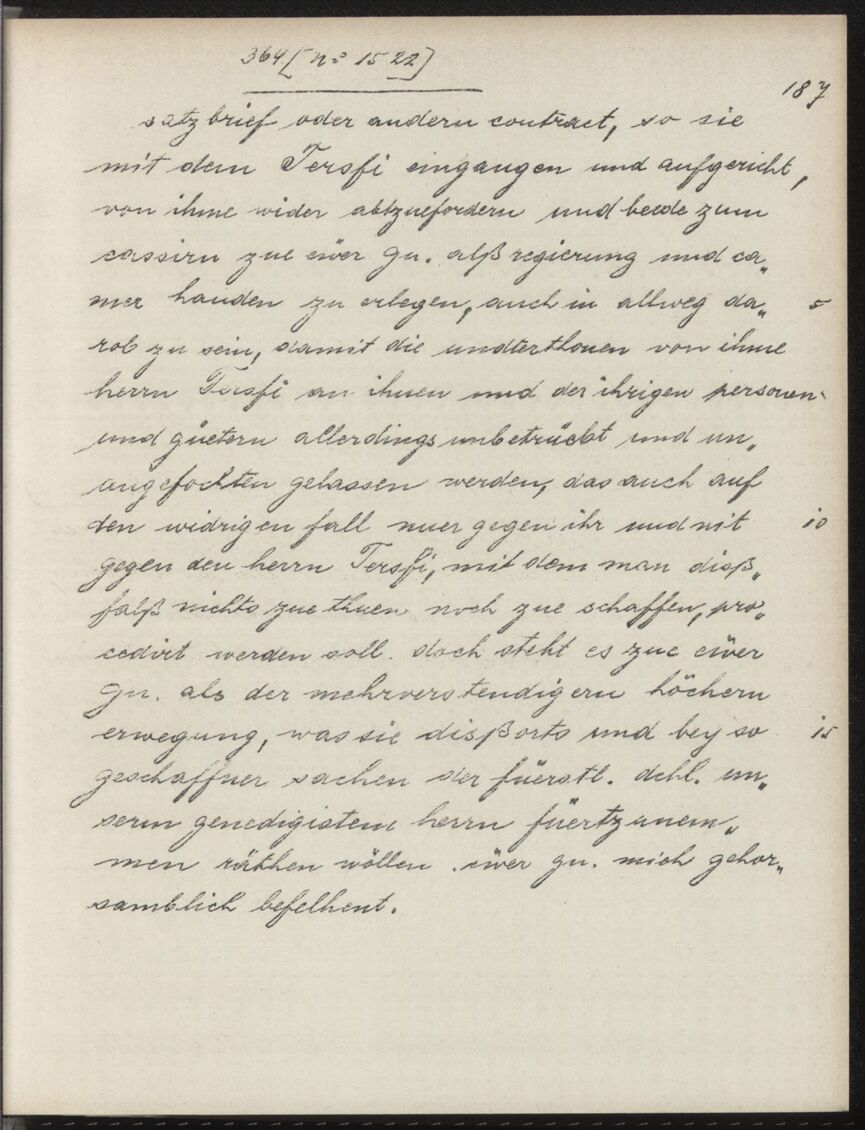 364 [nº 1522]
187
satzbrief oder andern contract, so sie
mit dem Tersfi eingangen und aufgericht,
von ihme wider abtzuefordern und beede zum
cassirn zue eüer gn. alß regierung und ca„
mer handen zu erlegen, auch in allweg da„ 5
rob zu sein, damit die undterthonen von ihme
herrn Tersfi an ihnen und der ihrigen personen
und güetern allerdings unbetrüebt und un„
angefochten gelassen werden, das auch auf
den widrigen fall nuer gegen ihr und nit 10
gegen den herrn Tersfi, mit dem man diß„
falß nichts zue thuen noch zue schaffen, pro„
cedirt werden soll. doch steht es zue eüer
gn. als der mehrverstendigern höchern
erwegung, was sie dißorts und bey so 15
geschaffner sachen der füerstl. dchl. un„
serm genedigistem herrn füertzunem„
men räthen wöllen. eüer gn. mich gehor„
samblich befelhent.